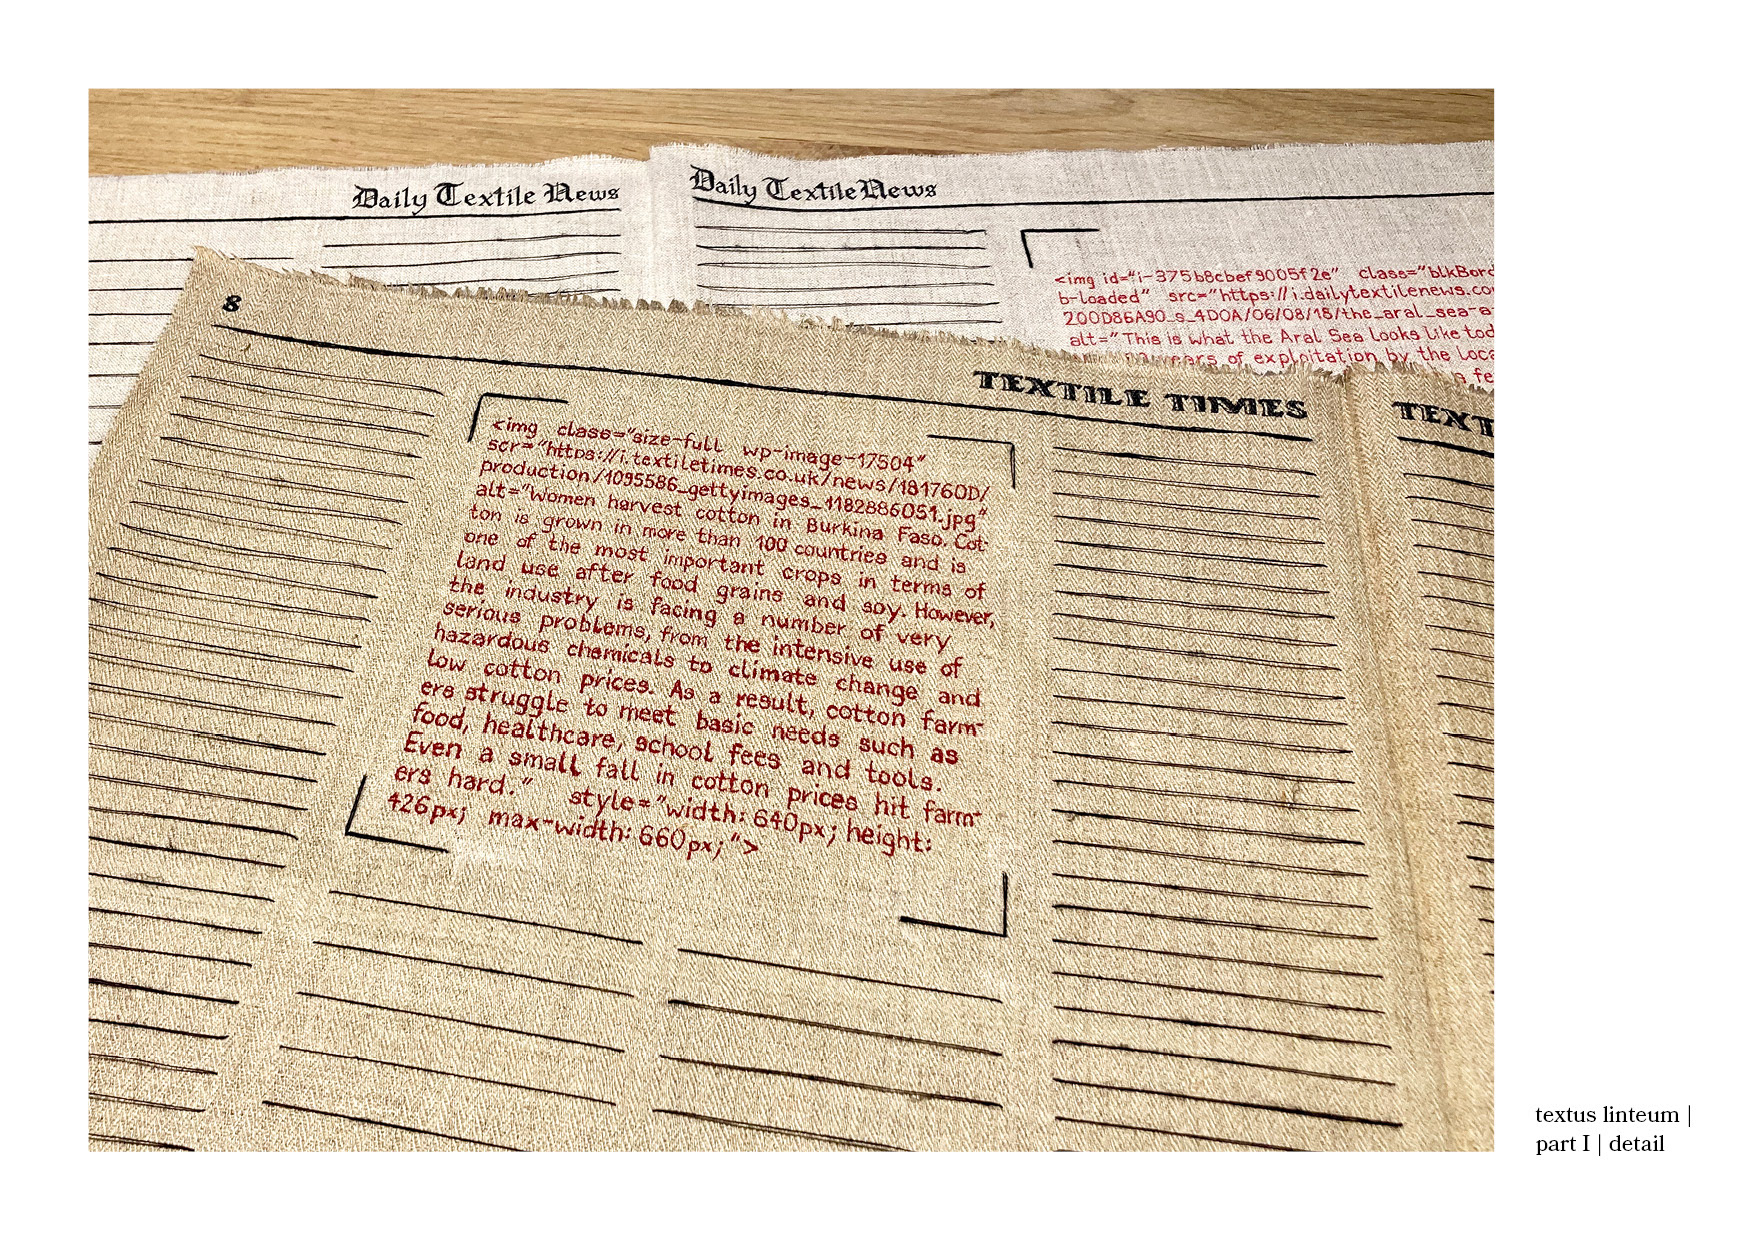 Daily Textile News
Daily Textile News
<img id="i-375b8cbef9005f2e" class="blkBord
b-loaded" src="https://i.dailytextilenews.co
200D86A90_s_4D0A/06/08/15/the_aral_sea-a
alt="This is what the Aral Sea looks like tod
of exploitation by the loca
fe
8
TEXTILE TIMES
TEXT
<img class="size-full wp-image-17504"
scr="https://i.textiletimes.co.uk/news/181760D/
production/1095586_gettyimages_1182886051.jpg"
alt="Women harvest cotton in Burkina Faso. Cot-
ton is grown in more than 100 countries and is
one of the most important crops in terms of
land use after food grains and soy. However,
the industry is facing a number of very
serious problems, from the intensive use of
hazardous chemicals to climate change and
low cotton prices. As a result, cotton farm-
ers struggle to meet basic needs such as
food, healthcare, school fees and tools.
Even a small fall in cotton prices hit farm-
ers hard." style="width: 640px; height:
426px; max-width: 660px;">
textus linteum |
part I | detail